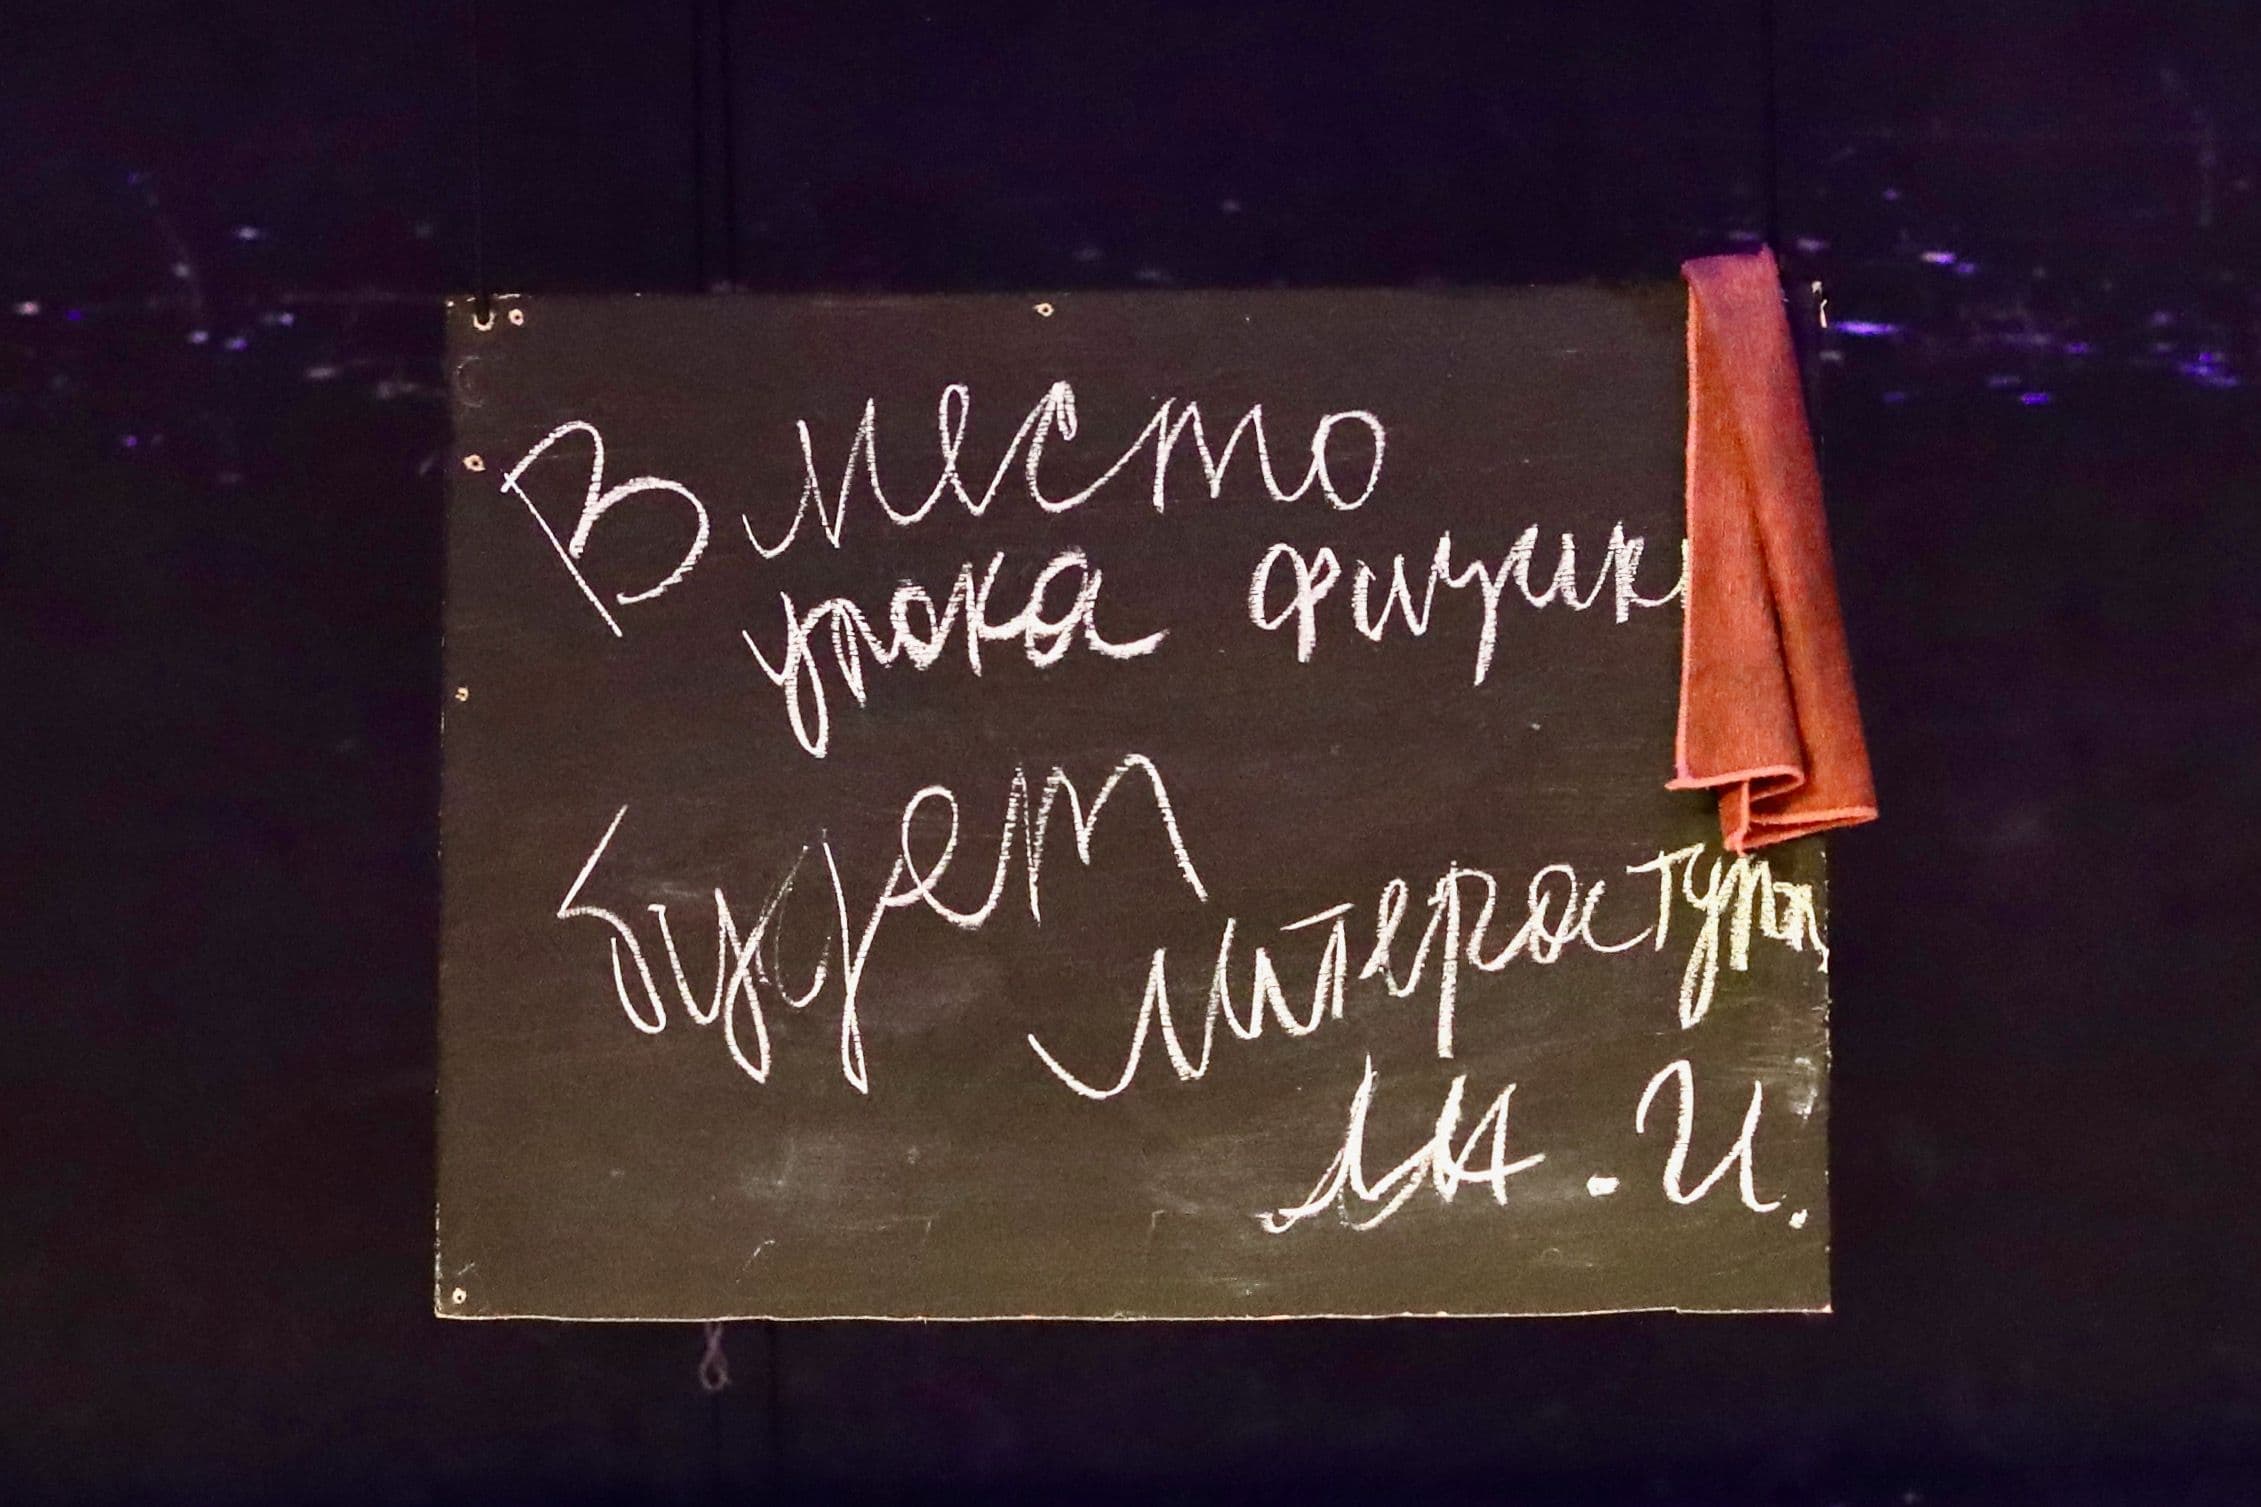 Вместо
урока физик
будет
литероступн
М.И.